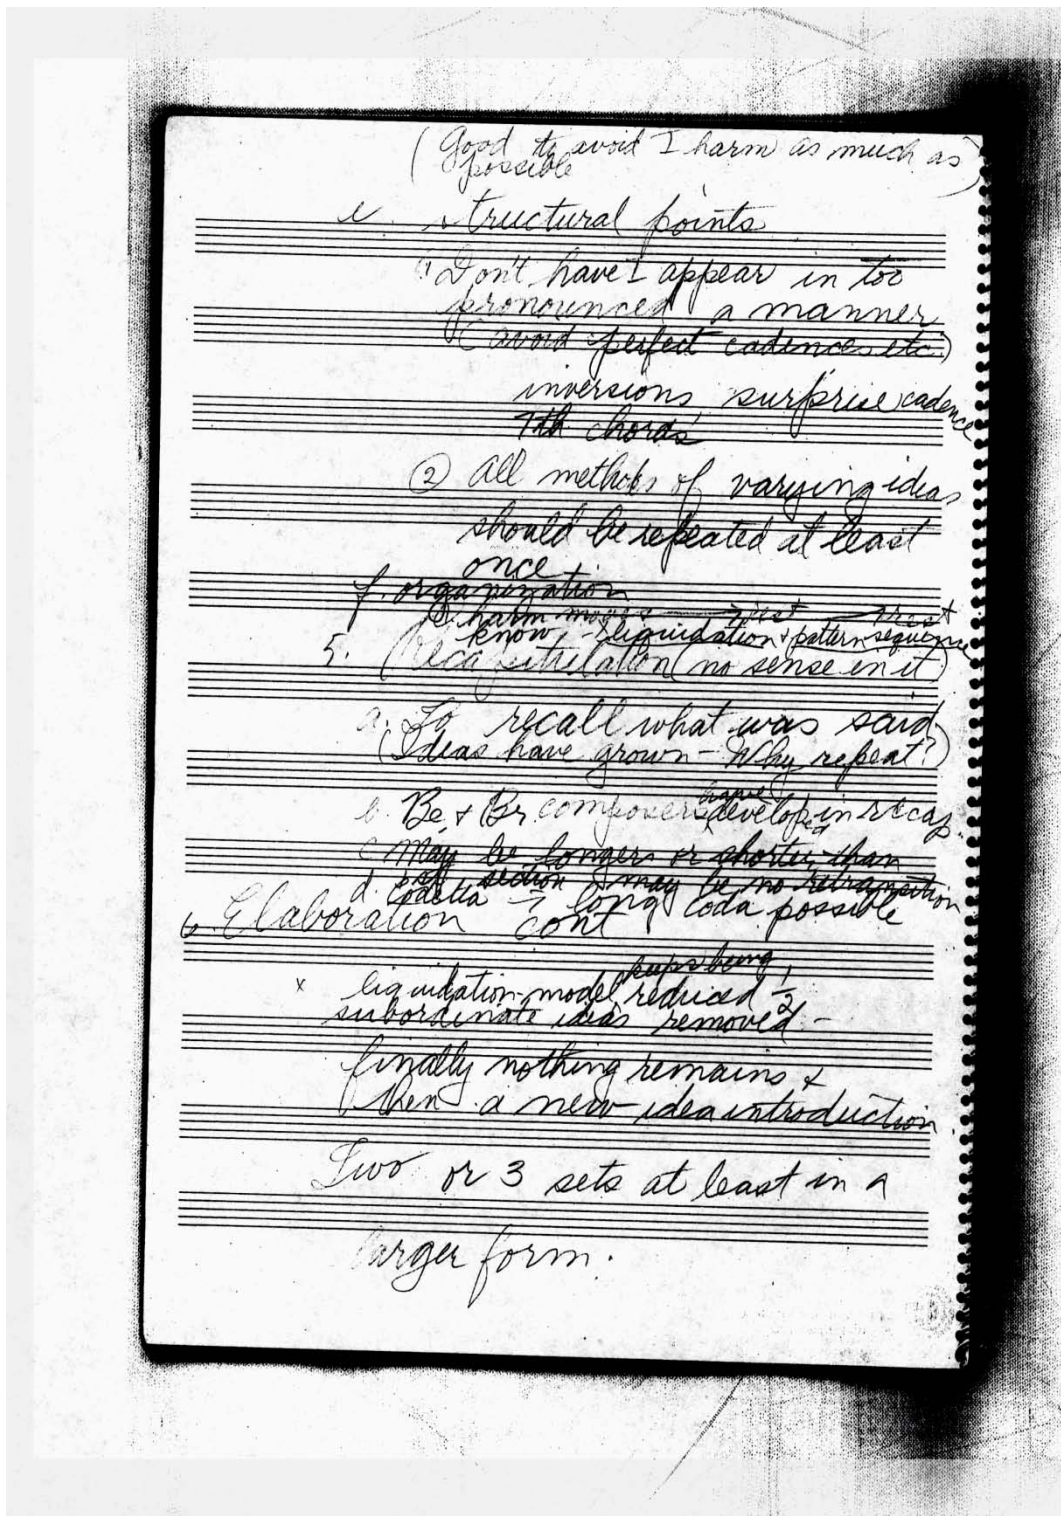 (Good to avoid I harm as much as
possible)
e. structural points
(1 Don't have I appear in too
pronounced a manner
(avoid perfect cadences etc.)
inversions, surprise cadence
7th chords
② All methods of varying ideas
should be repeated at least
once
f. organization
harm moves → rest → rest
know, - liquidation & pattern sequence
5. Recapitulation (no sense in it)
a. To recall what was said
(Ideas have grown - Why repeat?)
b. Be. & Br. composers have developed in recap.
c May be longer or shorter than
section may be no retransition
d. Codetta → long Coda possible
6. Elaboration cont
x liquidation - model keeps being reduced 1/2
subordinate ideas removed -
finally nothing remains &
then a new idea introduction.
Two or 3 sets at least in a
larger form.